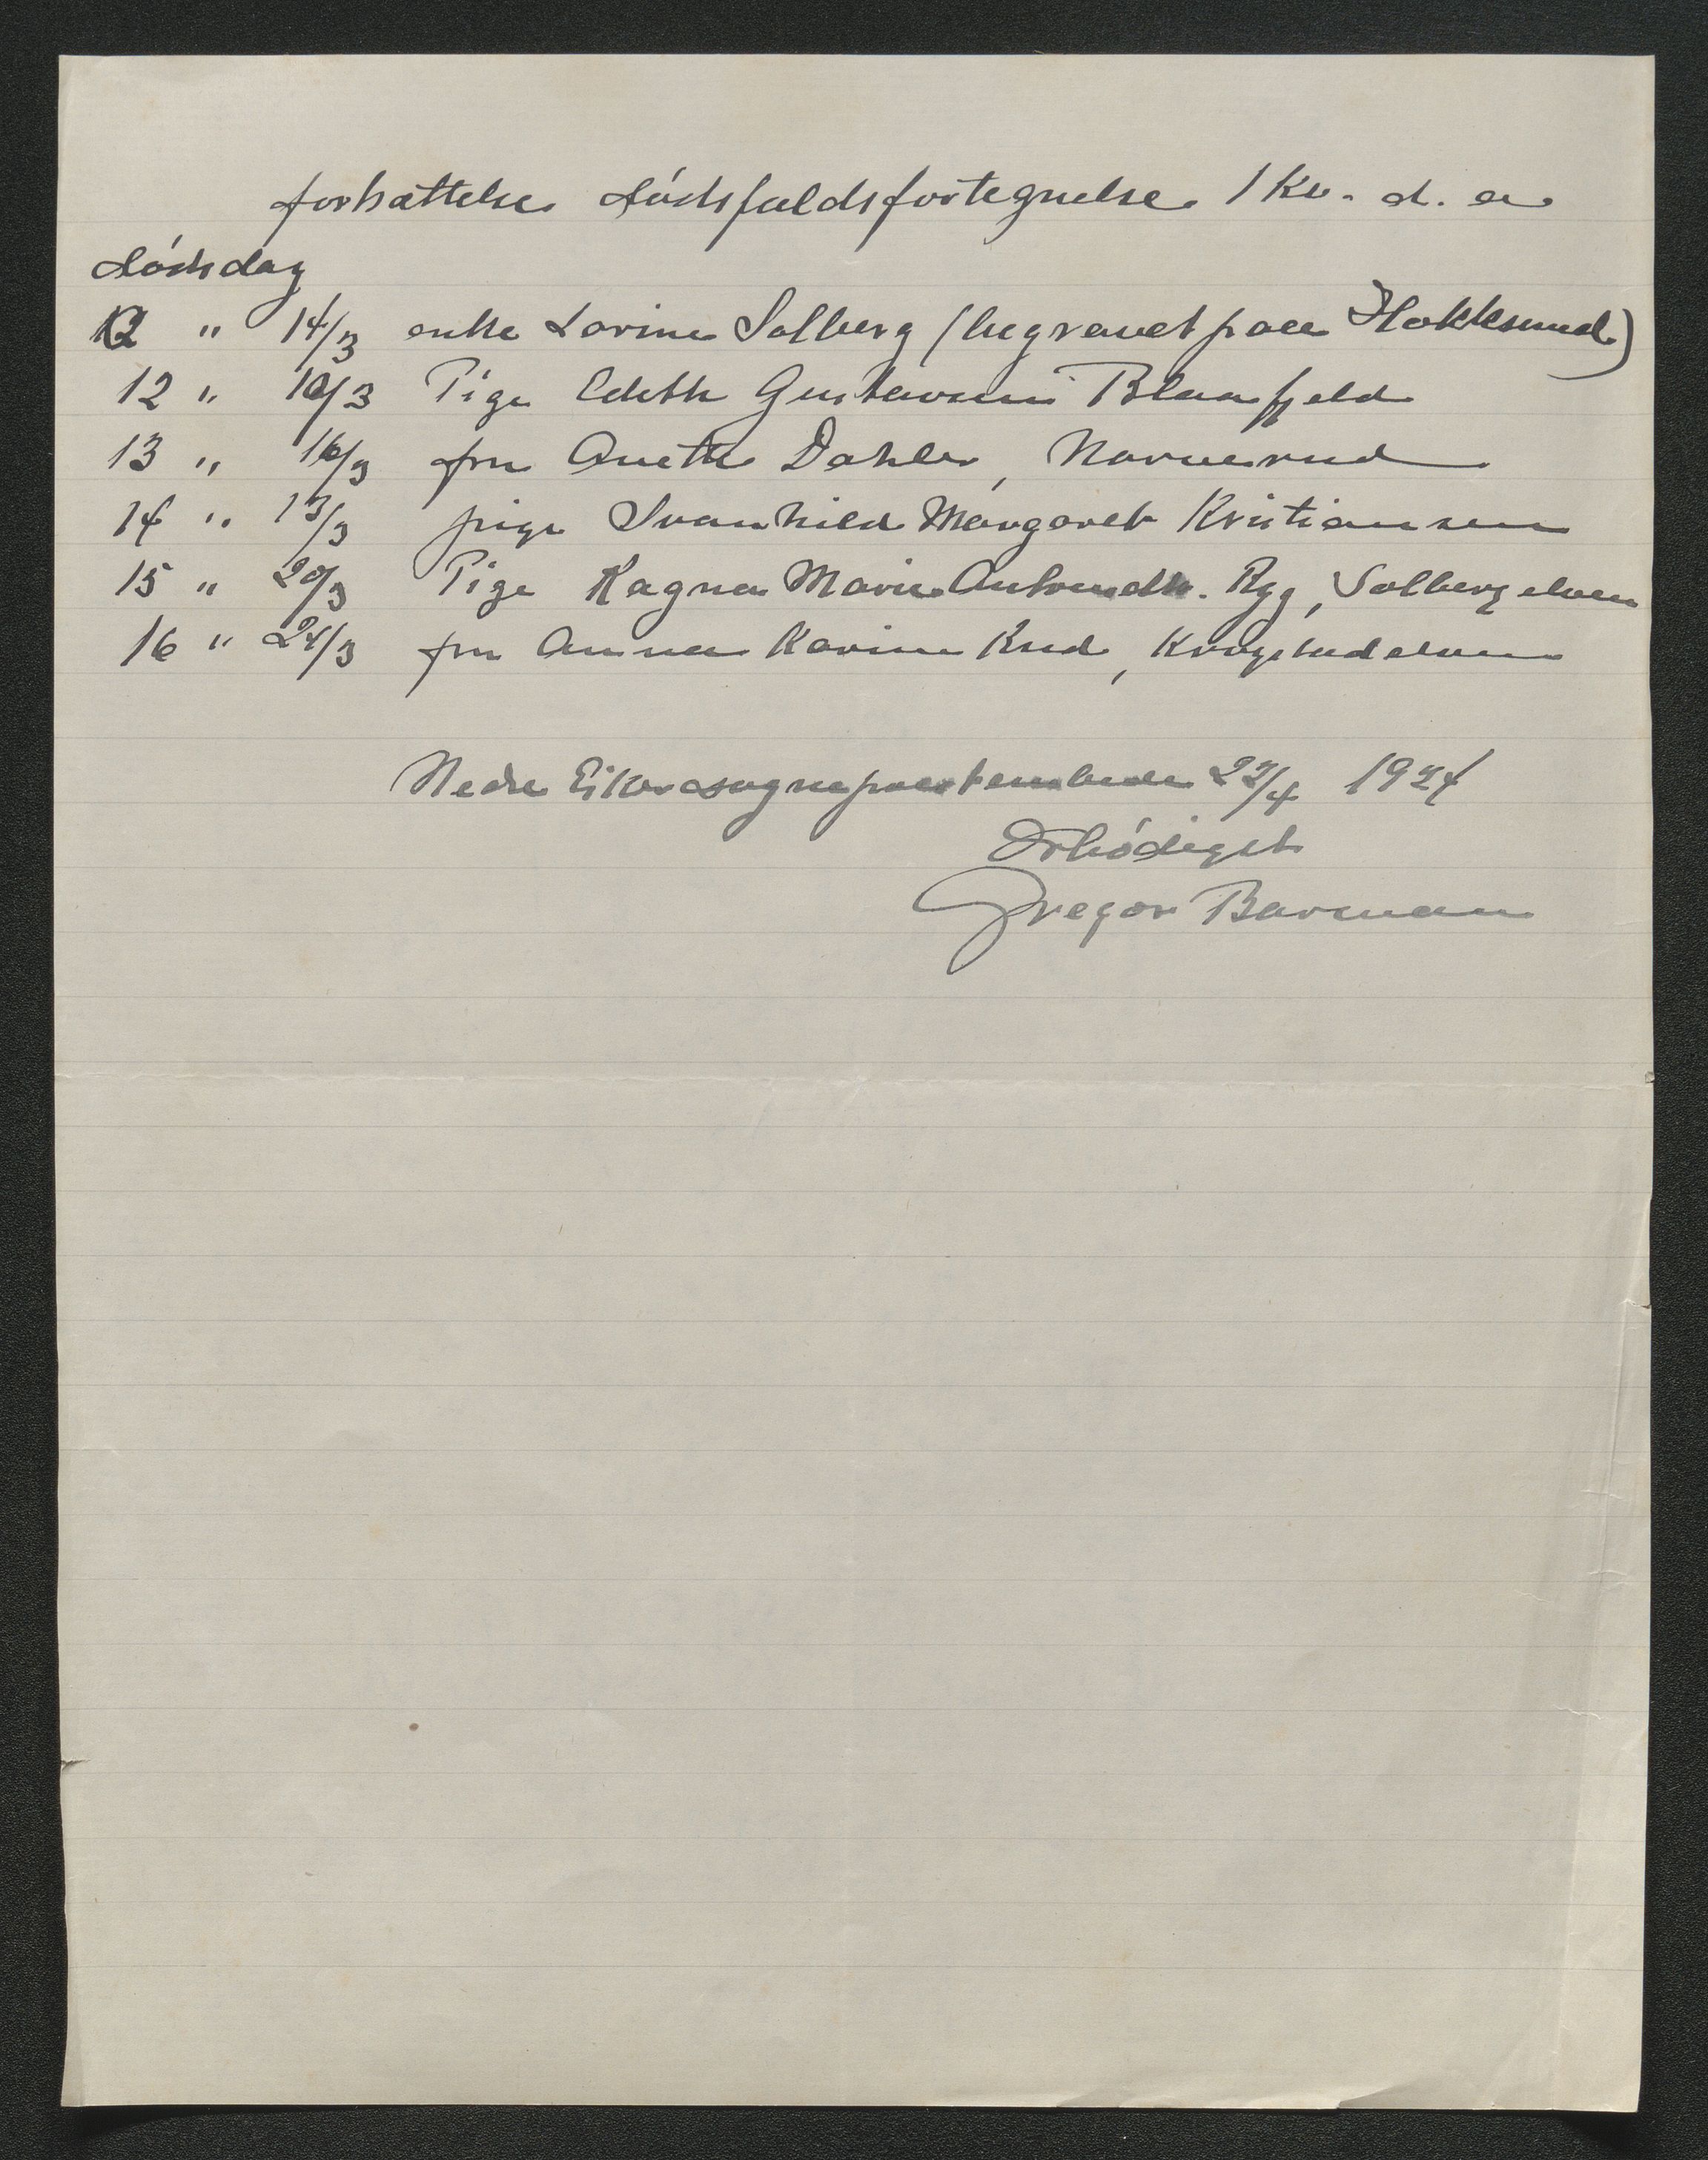 fortsættelse dódsfaldsfortegnelse 1 kv. d. a
dódsdag
12 " 14/3 enke Lovine Solberg (begravet paa Hokksund)
12 " 10/3 Pige Edith Gustavine Blaafjeld
13 " 16/3 fru Anette Dahler, Narverud
14 " 13/3 pige Svanhild Margaret Kristiansen
15 " 20/3 Pige Ragna Marie Rygg, Solbergelven
16 " 24/3 fru Anna Karine Rud, Krogstadelven
Nedre Eiker sogneprestembede 22/4 1924
Ærbódigst
Gregor Borman